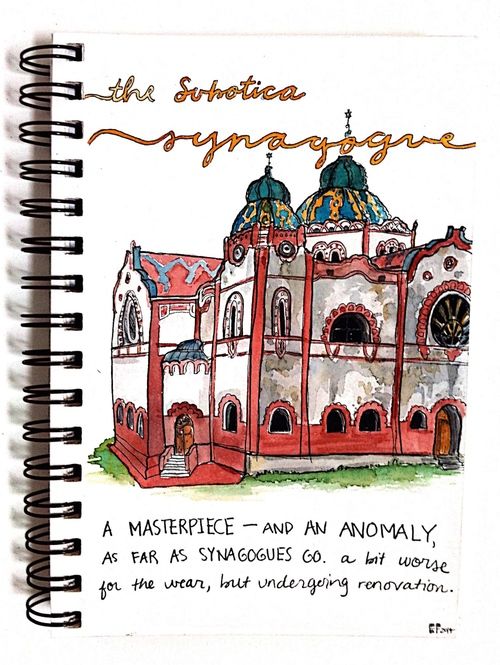 the Subotica
synagogue
A MASTERPIECE — AND AN ANOMALY,
AS FAR AS SYNAGOGUES GO. a bit worse
for the wear, but undergoing renovation.